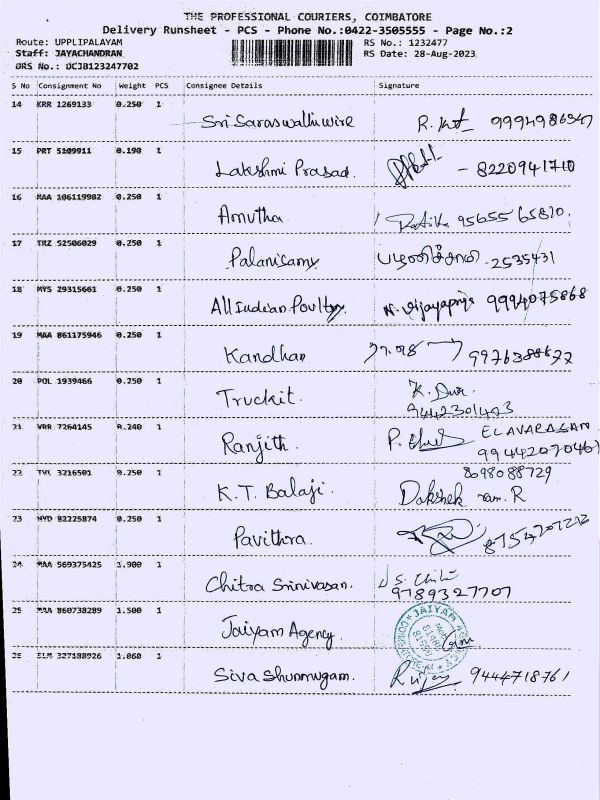 THE PROFESSIONAL COURIERS, COIMBATORE
Delivery Runsheet - PCS - Phone No.:0422-3505555 - Page No.:2
Route: UPPLIPALAYAM RS No.: 1232477
Staff: JAYACHANDRAN RS Date: 28-Aug-2023
DRS No.: DCJB123247702
S No Consignment No Weight PCS Consignee Details Signature
14 KRR 1269133 0.250 1 Sri Saraswathi wire 9994986347
15 PRT 5109911 0.190 1 Lakshmi Prasad. - 8220941710
16 MAA 106119902 0.250 1 Amutha 95655 65810.
17 TRZ 52506029 0.250 1 Palanisamy பழனிச்சாமி 2535431
18 MYS 29315661 0.250 1 All Indian Poultry N. Vijayapriya 9994075868
19 MAA 861175946 0.250 1 Kandhan
20 POL 1939466 0.250 1 Truckit. K.
9442301403
21 VRR 7264145 0.240 1 Ranjith. P. ELAVARASAN
22 TVL 3216501 0.250 1 K.T. Balaji. 8098088729
Dakshek ram. R
23 HYD 82225874 0.250 1 Pavithra.
24 MAA 569375425 1.900 1 Chitra Srinivasan. S. Chitra
9789327707
25 MAA 860738289 1.500 1 Jaiyam Agency. JAIYAM AGENCY
26 ELM 327188926 1.060 1 Siva Shunmugam. 9444718761